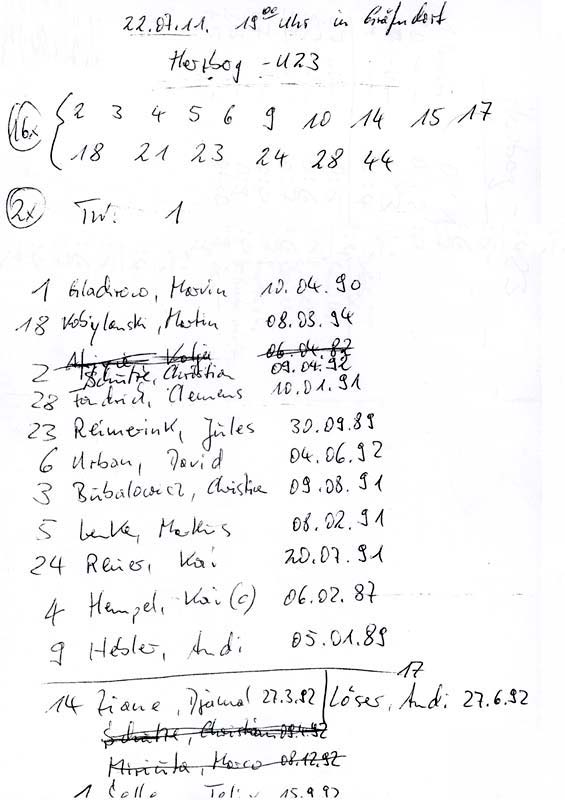 22.07.11. 19°° Uhr in Gräfendorf
Herzbog - U23
16x 2 3 4 5 6 9 10 14 15 17
18 21 23 24 28 44
2x TW: 1
1 Gladrow, Marvin 10.04.90
18 Kobylanski, Martin 08.03.94
06.04.82
2 Schulze, Christian 09.04.92
28 Clemens 10.01.91
23 Reimerink, Jules 30.09.89
6 Urban, David 04.06.92
3 Bubalowicz, 09.08.91
5 Lenke, Markus 08.02.91
24 Reiner, Kai 20.07.91
4 Hempel, Kai (c) 06.02.87
9 Hebler, Andi 05.01.89
14 Ziane, Djamal 27.3.92 | 17 Löser, Andi 27.6.92
Schulze, Christian 09.4.92
Miriuta, Marco 08.12.92
1 15.9.92